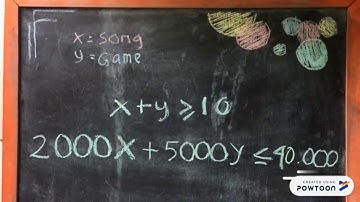 x = song
y = Game
x+y ≥ 10
2000x + 5000y ≤ 40.000
CREATED USING
POWTOON